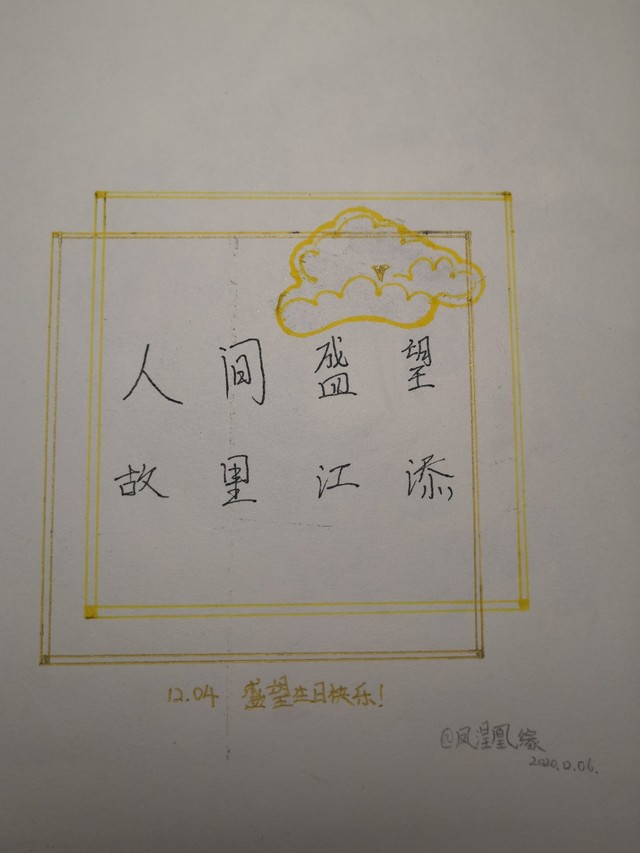 人间盛望
故里江添
12.04 盛望生日快乐!
@凤涅凰缘
2020.12.06.